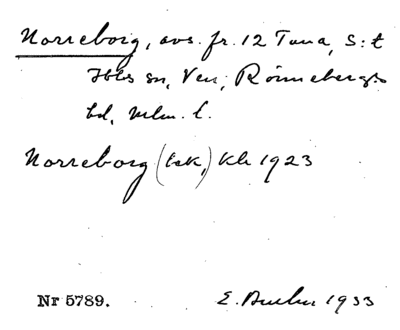 Norreborg, avs. fr. 12 Tuna, S:t
Ibbs sn, Ven, Rönnebergs
hd, Mlm. l.
Norreborg (ek,) Kb 1923
Nr 5789.
E. 1933